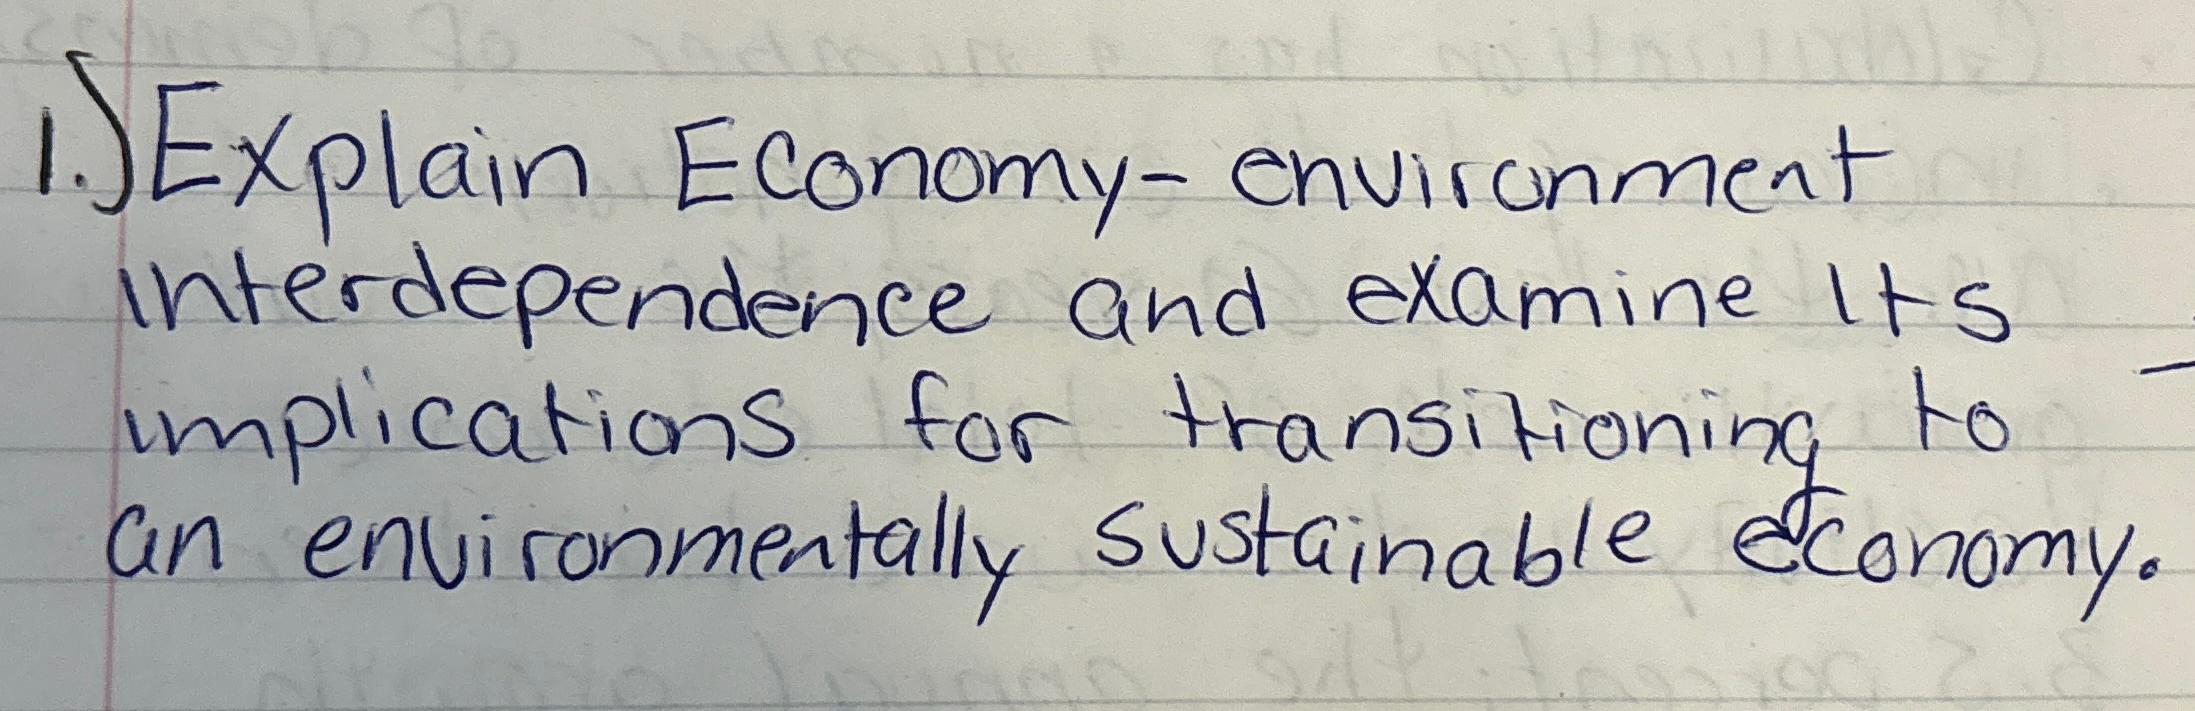 1.) Explain Economy- environment
interdependence and examine Its
implications for transitioning to
an environmentally sustainable economy.